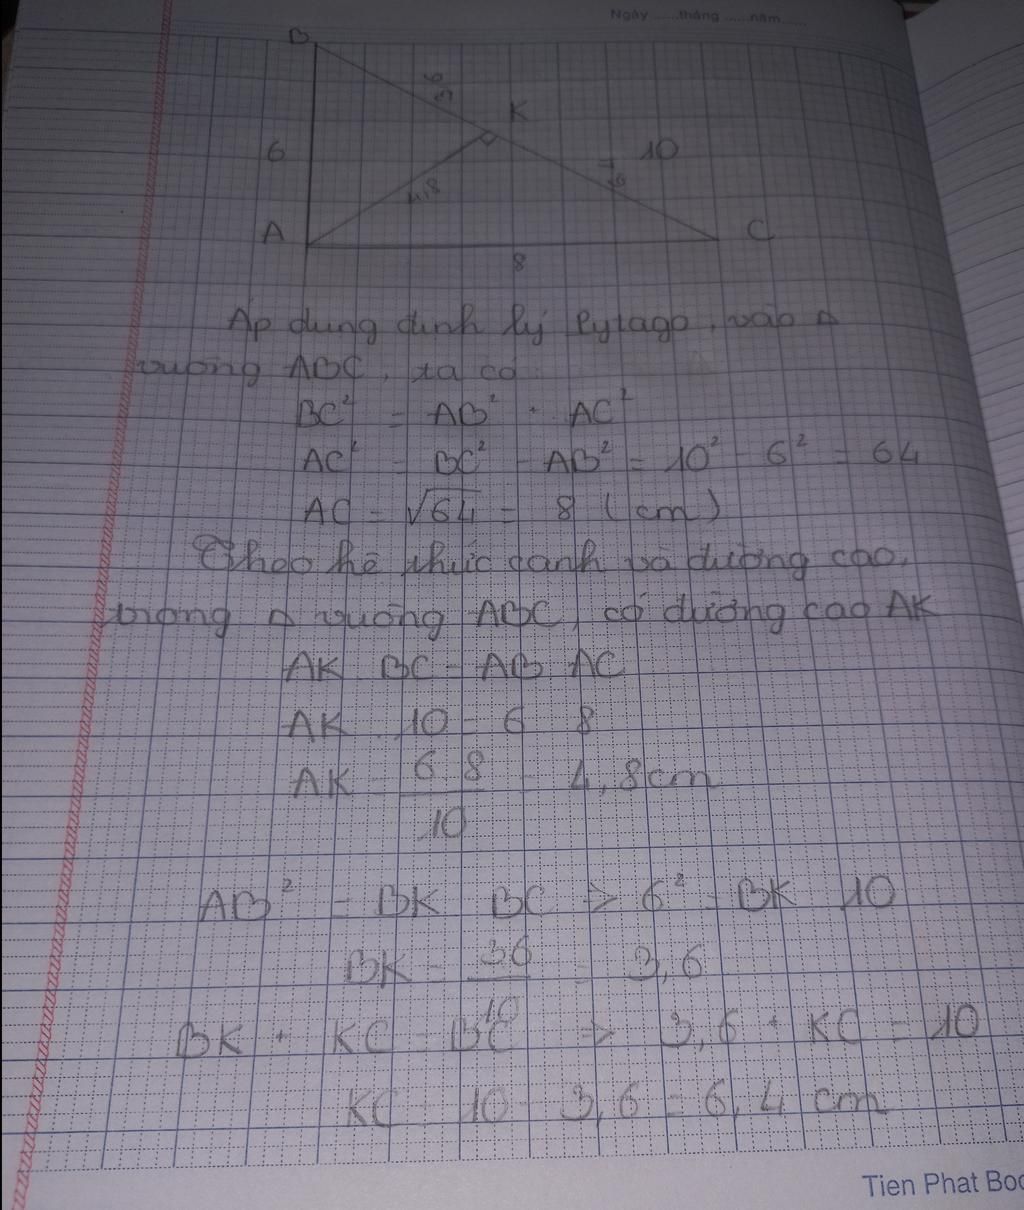 Ngày ......tháng ......năm......
B
3,6
K
6
10
4,8
A
C
8
Áp dụng định lý Pytago, vào Δ
vuông ABC, ta có
BC² = AB² + AC²
AC² = BC² - AB² = 10² - 6² = 64
AC = √64 = 8 (cm)
Theo hệ thức cạnh và đường cao,
trong Δ vuông ABC, có đường cao AK
AK . BC = AB . AC
AK . 10 = 6 . 8
AK = 6.8 / 10 = 4,8cm
AB² = BK . BC => 6² = BK . 10
BK = 36 / 10 = 3,6
BK + KC = BC => 3,6 + KC = 10
KC = 10 - 3,6 = 6,4 cm
Tien Phat Boo